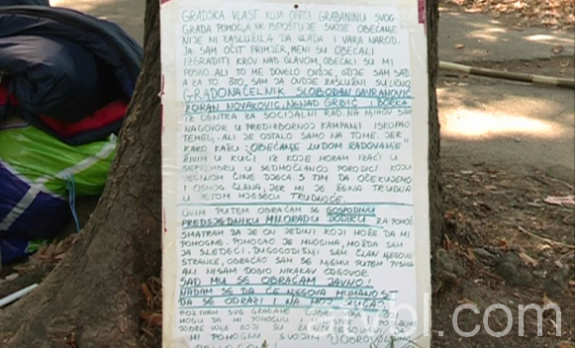 GRADSKA VLAST KOJA OBEĆA GRAĐANINU SVOG
GRADA POMOĆ, A NE ISPOŠTUJE SVOJE OBEĆANJE
NIJE NI ZASLUŽILA DA VLADA I VARA NAROD.
JA SAM OČIT PRIMJER, MENI SU OBEĆALI
IZGRADITI KROV NAD GLAVOM, OBEĆALI SU MI
POSAO ALI TO ME DOVELO OVDJE, GDJE SAM SAD.
A ZA TO ŠTO SAM JA OVDJE ZASLUŽNI SU LIČNO
GRADONAČELNIK SLOBODAN GAVRANOVIĆ
ZORAN NOVAKOVIĆ, NENAD GRBIĆ I
IZ CENTRA ZA SOCIJALNI RAD. NA NJIHOV SAM
NAGOVOR U PREDIZBORNOJ KAMPANJI ISKOPAO
TEMELJ, ALI JE OSTALO SAMO NA TOME. JER
KAKO KAŽU: "OBEĆANJE LUDOM RADOVANJE"
ŽIVIM U KUĆI IZ KOJE MORAM IZAĆI U
SEPTEMBRU U SEDMOČLANOJ PORODICI KOJU
VEĆINOM ČINE DJECA S TIM DA OČEKUJEMO
I OSMOG ČLANA, JER MI JE ŽENA TRUDNA
U PETOM MJESECU TRUDNOĆE.
OVIM PUTEM OBRAĆAM SE GOSPODINU
PREDSJEDNIKU MILORADU DODIKU ZA POMOĆ
SMATRAM DA JE ON JEDINI KOJI MOŽE DA MI
POMOGNE. POMOGAO JE MNOGIMA, MOŽDA SAM
JA SLEDEĆI. DUGOGODIŠNJI SAM ČLAN NJEGOVE
STRANKE, OBRAĆAO SAM SE NJEMU PUTEM PISMA
ALI NISAM DOBIO NIKAKAV ODGOVOR.
SAD MU SE OBRAĆAM JAVNO!
NADAM SE DA ĆE NJEGOVA HUMANOST
DA SE ODRAZI I NA MOJ SLUČAJ.
POZIVAM SVE GRAĐANE
MOGU DA MI POMOGNU I
DOBRE VOLJE KOJI SU
MI POMOGNU SVOJIM DOBROVOLJNIM
.com